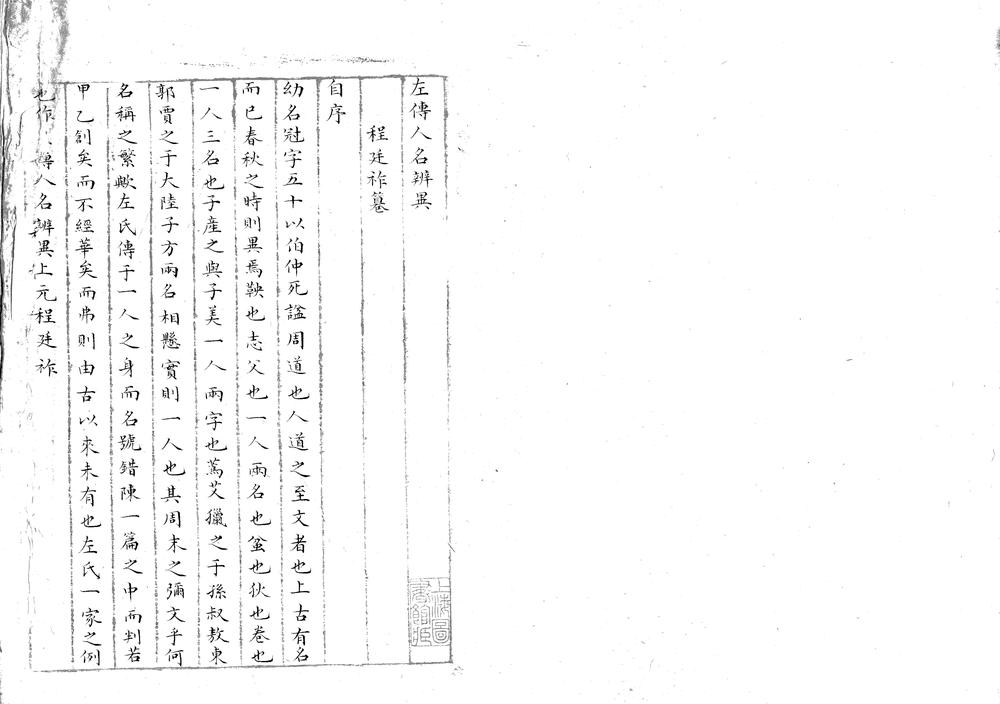 左傳人名辨異
程廷祚纂
自序
幼名冠字五十以伯仲死諡周道也人道之至文者也上古有名
而已春秋之時則異焉鞅也志父也一人兩名也盆也狄也卷也
一人三名也子產之與子美一人兩字也蒍艾獵之于孫叔敖東
郭賈之于大陸子方兩名相懸實則一人也其周末之彌文乎何
名稱之繁歟左氏傳于一人之身而名號錯陳一篇之中而判若
甲乙創矣而不經華矣而弗則由古以來未有也左氏一家之例
也作左傳人名辨異上元程廷祚
上海圖書館藏